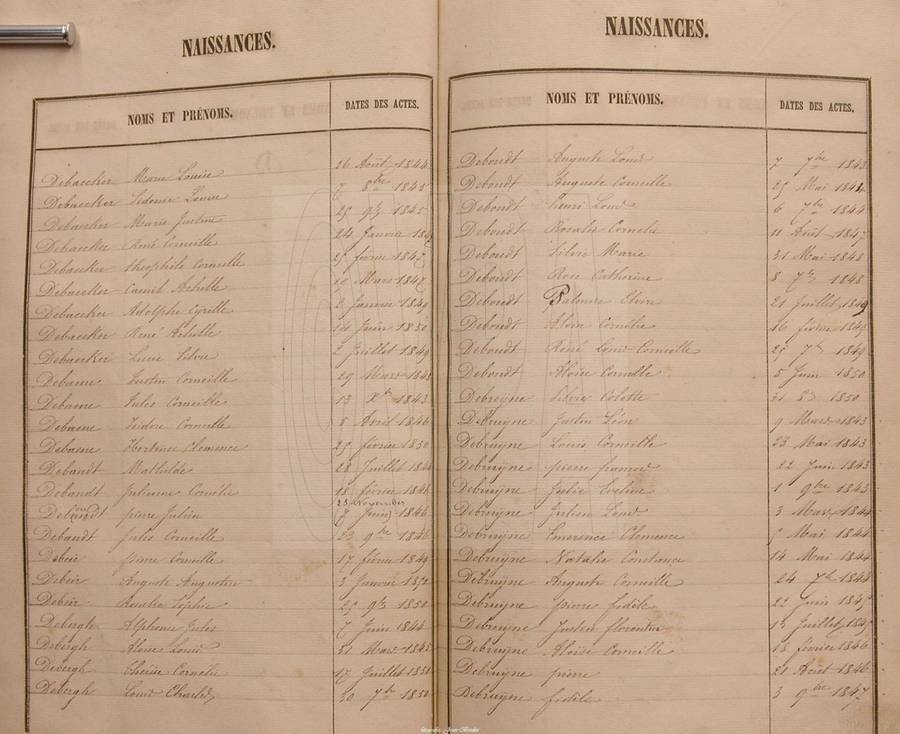 NAISSANCES.
NOMS ET PRÉNOMS. DATES DES ACTES.
Debaecker Marie Louise 26 Août 1844
Debaecker Sidonie Louise 7 8bre 1848
Debaecker Marie Justine 25 9bre 1845
Debaecker René Corneille 24 Janvier 1847
Debaecker théophile Corneille février 1847
Debaecker Camil Achille Mars 1847
Debaecker Adolphe Cyrille 3 Janvier 1849
Debaecker René Achille 14 Juin 1850
Debaecker Silvie 2 Juillet 1849
Debasne Justin Corneille 29 Mars
Debasne Jules Corneille 13 Xbre 1843
Debasne Isidore Corneille 8 Avril 1846
Debasne Hortence Clemence 25 février 1850
Debandt Mathilde 28 Juillet
Debandt Julienne Cornélie 18 février 1846
23 Novembre
pierre Julien (8 Juin) 1846
Debaudt Jules Corneille 23 9bre 1846
pierre Corneille 17 février 1849
Auguste Augustin 3 Janvier
Rosalie Sophie 25 9bre 1850
Debergh Alphonse Jules 7 Juin 1844
Debergh Aloïse Louis 31 Mars 1845
Debergh Thérèse Cornélie 17 Juillet
Debergh Louis Charles 30 7bre 1850
NAISSANCES.
NOMS ET PRÉNOMS. DATES DES ACTES.
Deboudt Auguste Louis 7 7bre 1843
Deboudt Auguste Corneille 25 Mai 1844
Deboudt henri Louis 6 7bre 1844
Deboudt Rosalie Cornélie 11 Août 1847
Deboudt Silvie Marie 31 Mai 1848
Deboudt Rose Catherine 8 7bre 1848
Deboudt Elvire 21 Juillet 1849
Deboudt Cornélie 16 février 1849
Deboudt René Louis Corneille 25 7bre 1849
Deboudt Aloïse Corneille 5 Juin 1850
Debruyne Silvie Colette 31 1850
Debruyne Justin Léon 9 Mars 1843
Debruyne Louis Corneille 23 Mai 1843
Debruyne pierre francois 22 Juin 1843
Debruyne Julie Eveline 1 9bre 1843
Debruyne Julien Louis 3 Mars 1844
Debruyne Emerence Clemence Mai 1844
Debruyne Natalie Constance 14 Mai 1844
Debruyne Auguste Corneille 24 7bre 1844
Debruyne pierre fidèle 22 Juin 1845
Debruyne Justin florentin Juillet 1845
Debruyne Aloïse Corneille 18 février 1846
Debruyne pierre 21 Août 1846
Debruyne fidèle 3 9bre 1847